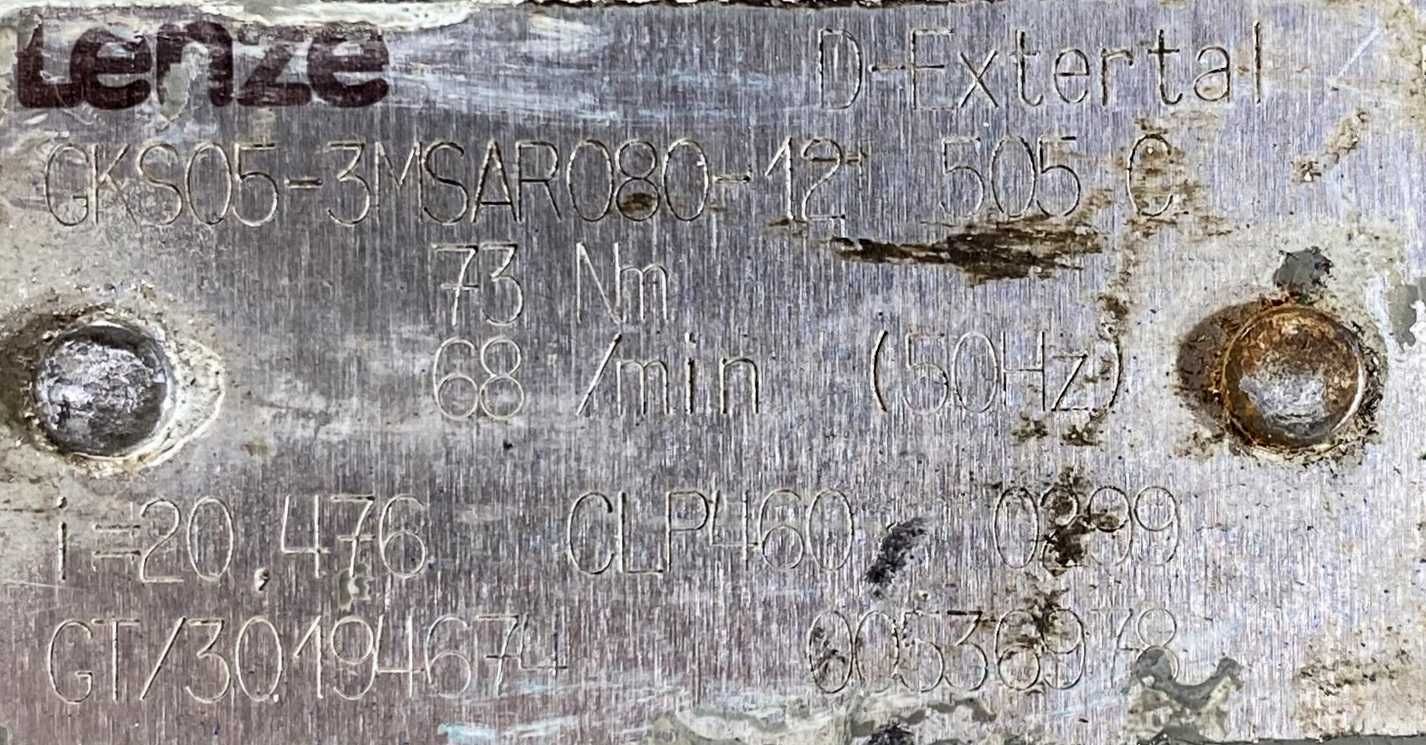 Lenze D-Extertal
GKS05-3MSAR080-12 505 C
73 Nm
68 /min (50Hz)
i=20,476 CLP460 0299
GT/30194674 00536978